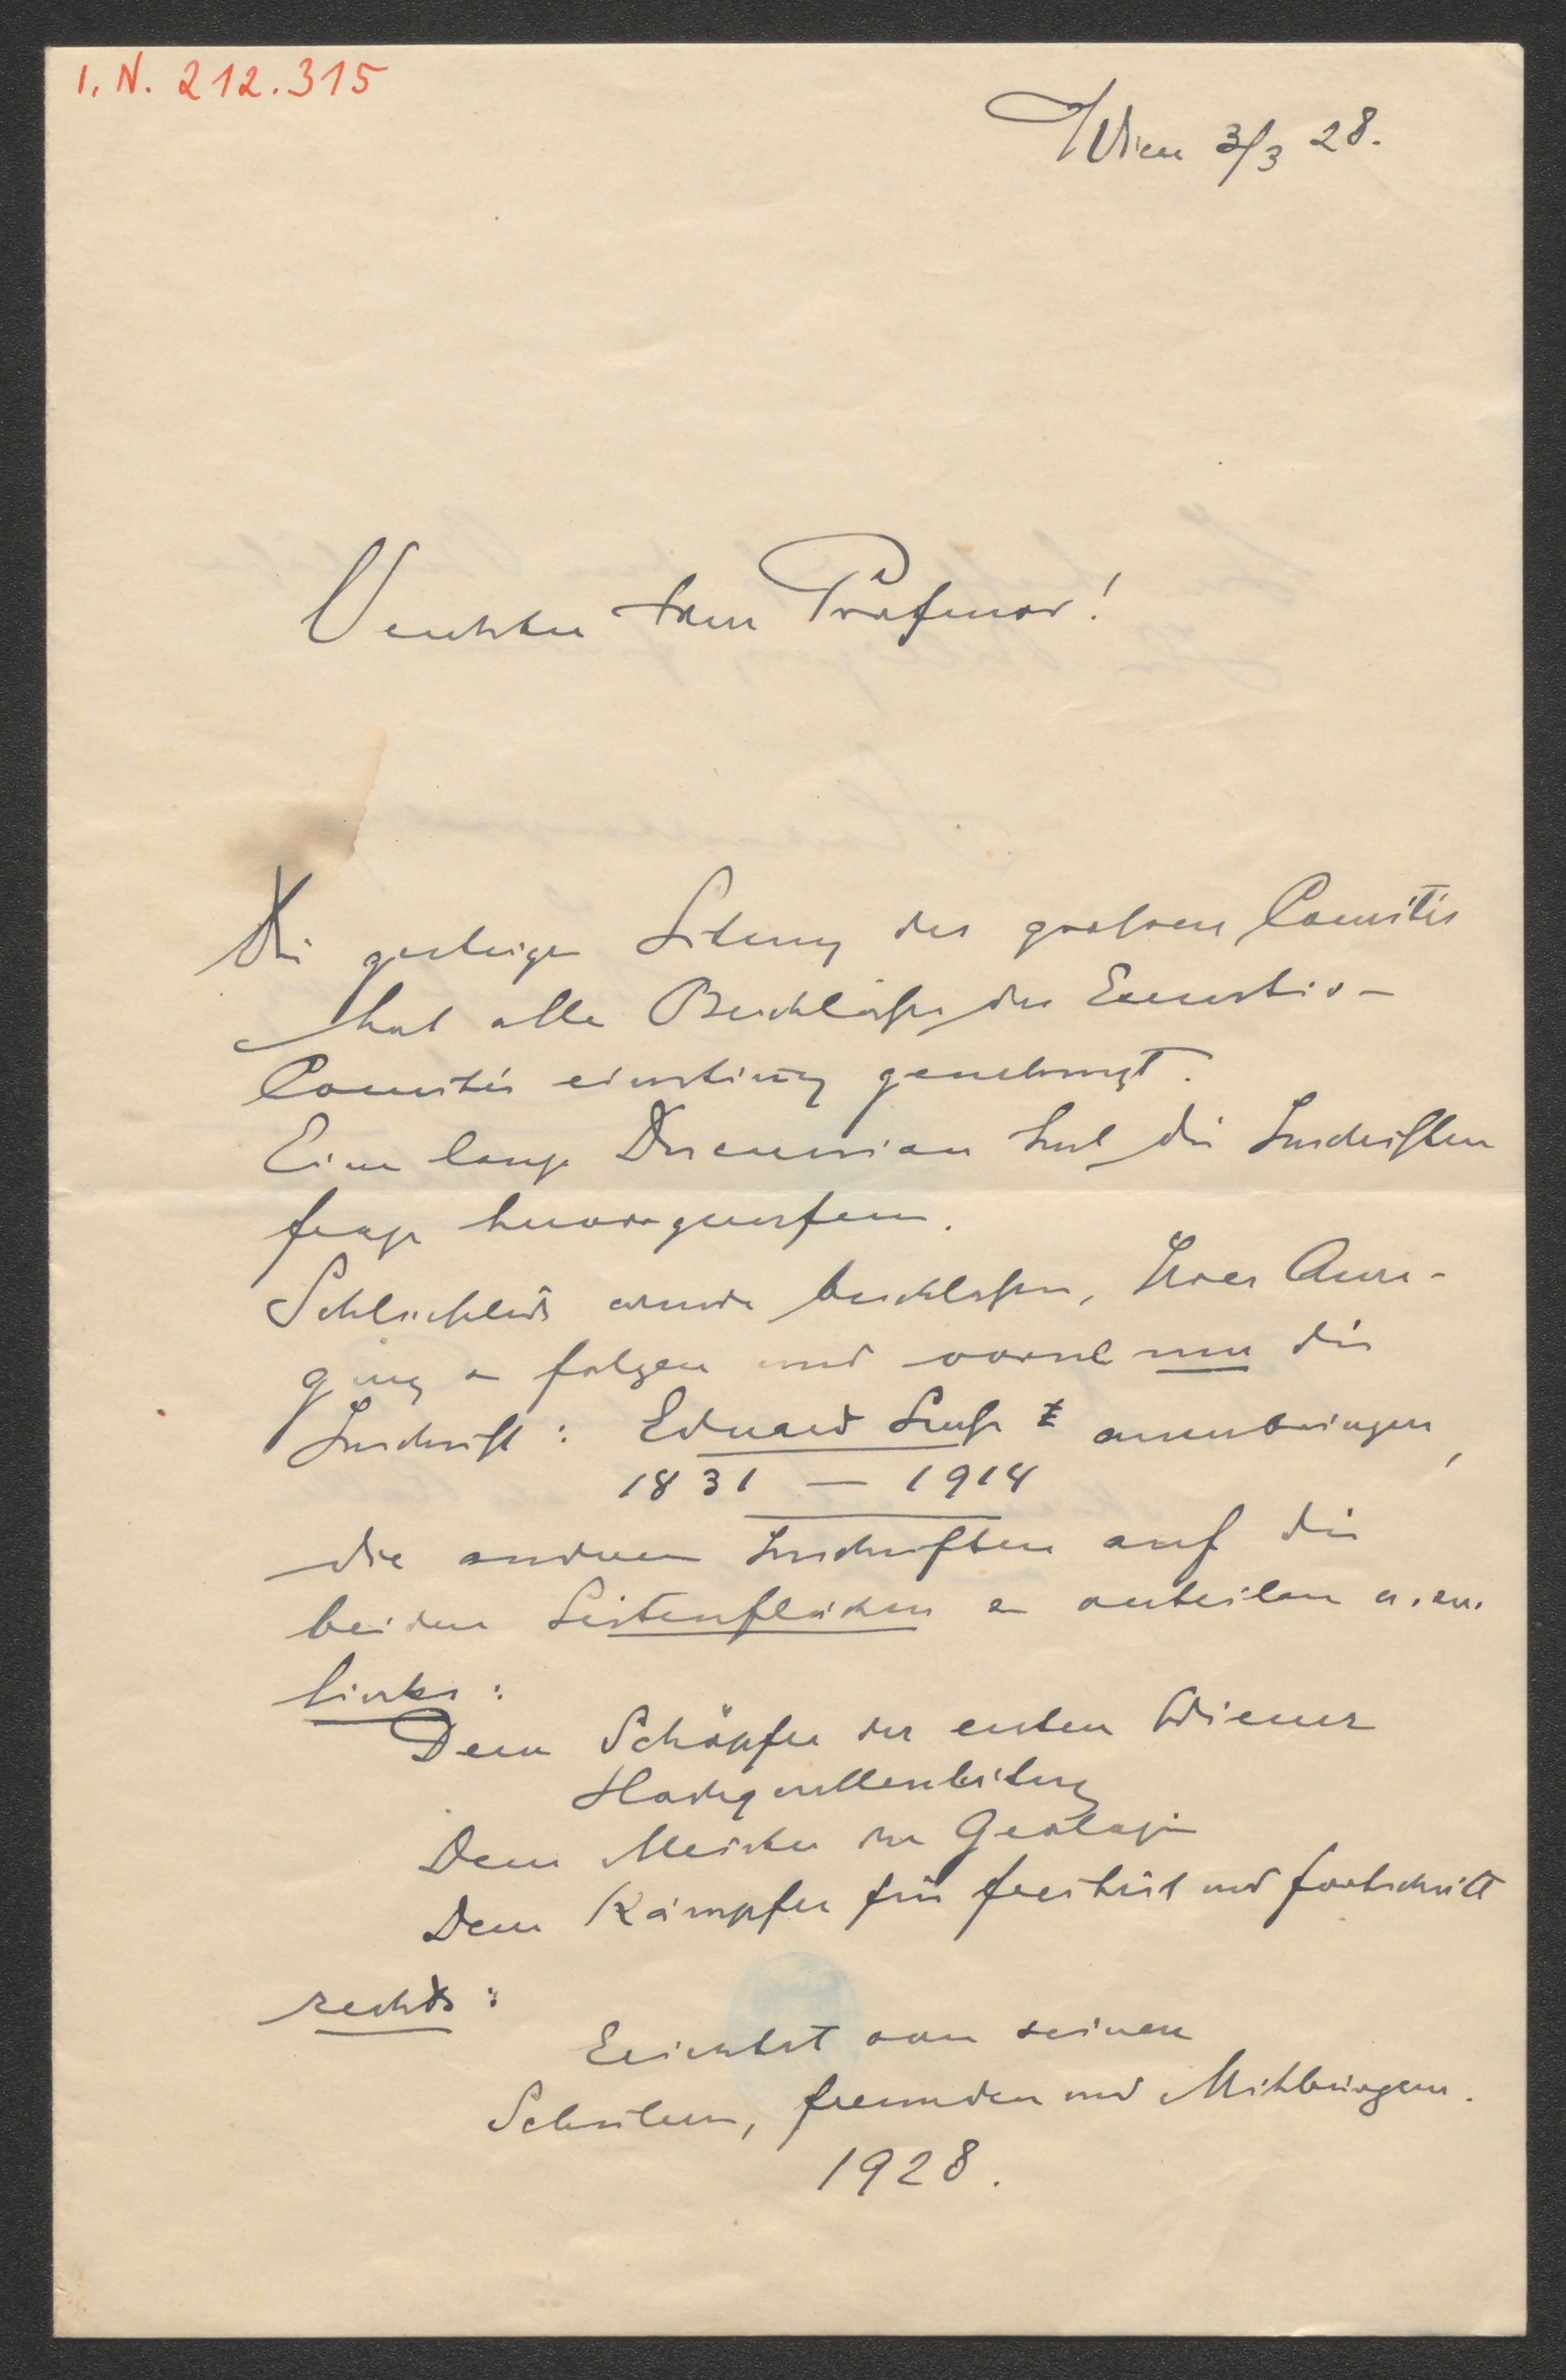 I. N. 212.315
Wien 3/3 28.
Verehrter Herr Professor!
Die gestrige Sitzung des grossen Comités
hat alle Beschlüsse des Executiv-
Comités einstimig genehmigt.
Eine lange Discussion hat die Inschriften
frage hervorgerufen.
Schliesslich wurde beschlossen, Ihrer Anre-
gung zu folgen und vorne nur die
Inschrift: Eduard Suess anzubringen,
1831 — 1914
die anderen Inschriften auf die
beiden Seitenflächen zu verteilen u. zw.
links:
Dem Schöpfer der ersten Wiener
Hochquellenleitung
Dem Meister der Geologie
Dem Kämpfer für Freiheit und Fortschritt
rechts:
Errichtet von seinen
Schülern, Freunden und Mitbürgern.
1928.